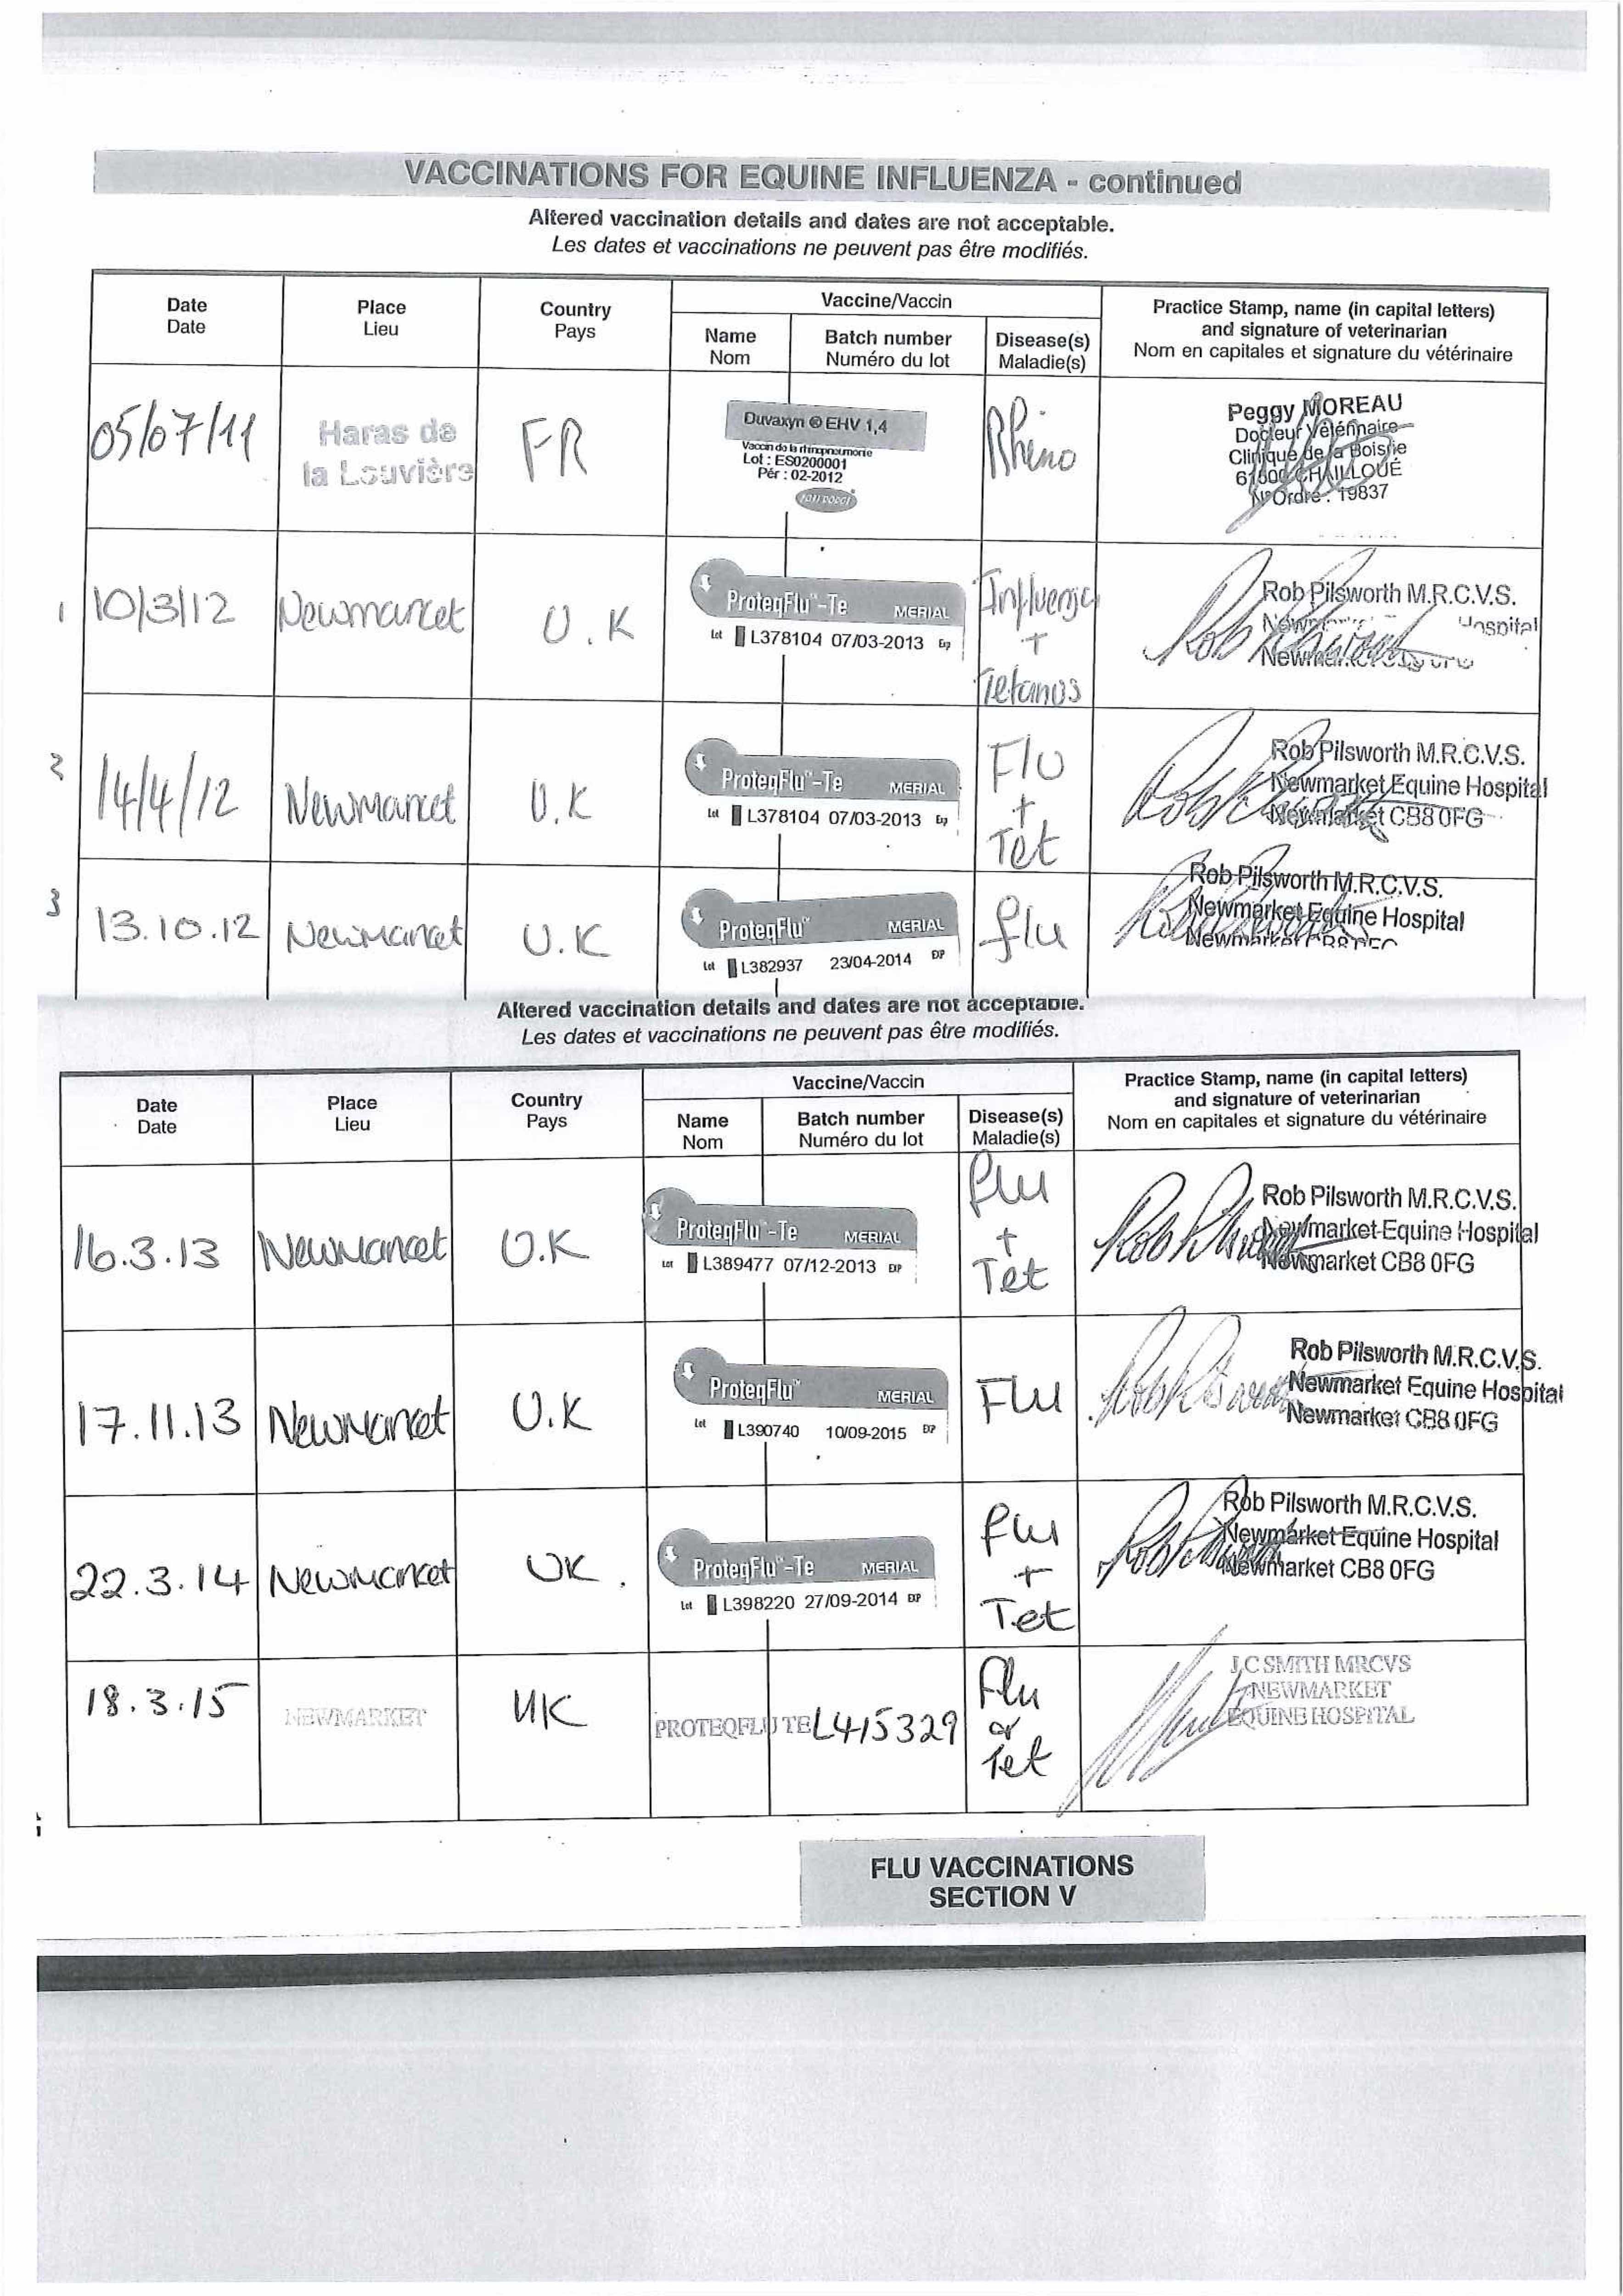 VACCINATIONS FOR EQUINE INFLUENZA - continued
Altered vaccination details and dates are not acceptable.
Les dates et vaccinations ne peuvent pas être modifiés.
Date Place Country Vaccine/Vaccin Practice Stamp, name (in capital letters)
Date Lieu Pays Name Batch number Disease(s) and signature of veterinarian
Nom Numéro du lot Maladie(s) Nom en capitales et signature du vétérinaire
05/07/11 Haras de la Louvière FR
Duvaxyn ® EHV 1,4
Vaccin de la rhinopneumonie
Lot : ES0200001
Pér : 02-2012
Rhino
Peggy MOREAU
Docteur Vétérinaire
Clinique de la Boisrie
61500 CHAILLOUÉ
N° Ordre : 19837
1 10/3/12 Newmarket U.K
ProteqFlu™-Te MERIAL
Lot L378104 07/03-2013 Exp
Influenza
+
Tetanus
Rob Pilsworth M.R.C.V.S.
Hospital
2 14/4/12 Newmarket U.K
ProteqFlu™-Te MERIAL
Lot L378104 07/03-2013 Exp
Flu
+
Tet
Rob Pilsworth M.R.C.V.S.
Newmarket Equine Hospital
Newmarket CB8 0FG
3 13.10.12 Newmarket U.K
ProteqFlu™ MERIAL
Lot L382937 23/04-2014 EXP
flu
Rob Pilsworth M.R.C.V.S.
Newmarket Equine Hospital
Newmarket
Altered vaccination details and dates are not acceptable.
Les dates et vaccinations ne peuvent pas être modifiés.
Date Place Country Vaccine/Vaccin Practice Stamp, name (in capital letters)
Date Lieu Pays Name Batch number Disease(s) and signature of veterinarian
Nom Numéro du lot Maladie(s) Nom en capitales et signature du vétérinaire
16.3.13 Newmarket U.K
ProteqFlu™-Te MERIAL
Lot L389477 07/12-2013 EXP
flu
+
Tet
Rob Pilsworth M.R.C.V.S.
Newmarket Equine Hospital
Newmarket CB8 0FG
17.11.13 Newmarket U.K
ProteqFlu™ MERIAL
Lot L390740 10/09-2015 EXP
Flu
Rob Pilsworth M.R.C.V.S.
Newmarket Equine Hospital
Newmarket CB8 0FG
22.3.14 Newmarket UK.
ProteqFlu™-Te MERIAL
Lot L398220 27/09-2014 EXP
flu
+
Tet
Rob Pilsworth M.R.C.V.S.
Newmarket Equine Hospital
Newmarket CB8 0FG
18.3.15 NEWMARKET UK
PROTEQFLU TE L415329
Flu
or
Tet
J.C SMITH MRCVS
NEWMARKET
EQUINE HOSPITAL
FLU VACCINATIONS
SECTION V